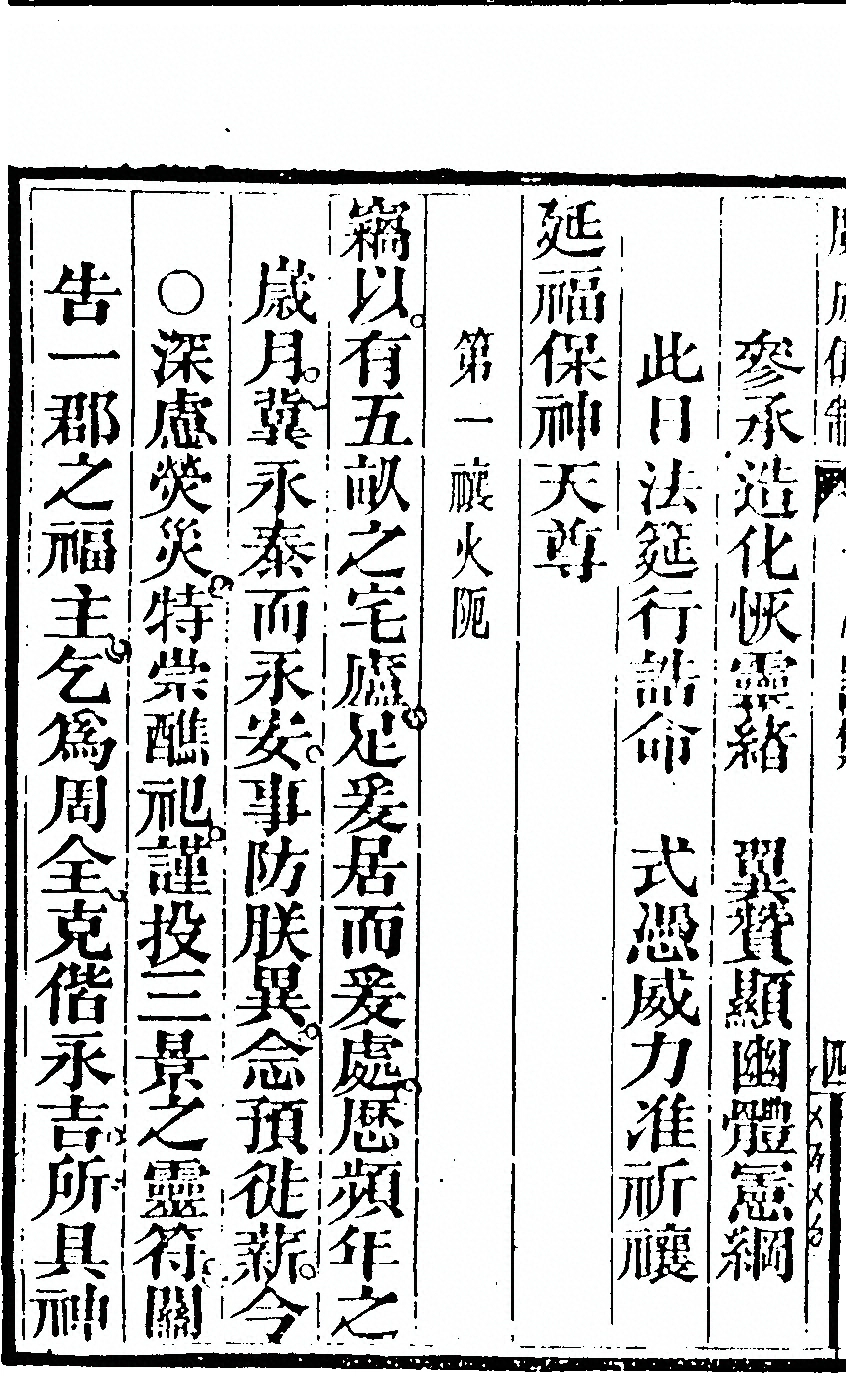 參承造化恢靈緒　翼贊顯幽體憲綱
此日法筵行誥命　式憑威力准祈禳
延福保神天尊
第一禳火阨
竊以有五畝之宅廬足爰居而爰處歷頻年之
歲月冀永泰而永安事防朕異念預徙薪今
○深慮熒災特崇醮祀謹投三景之靈符關
告一郡之福主乞為周全克偕永吉所具神